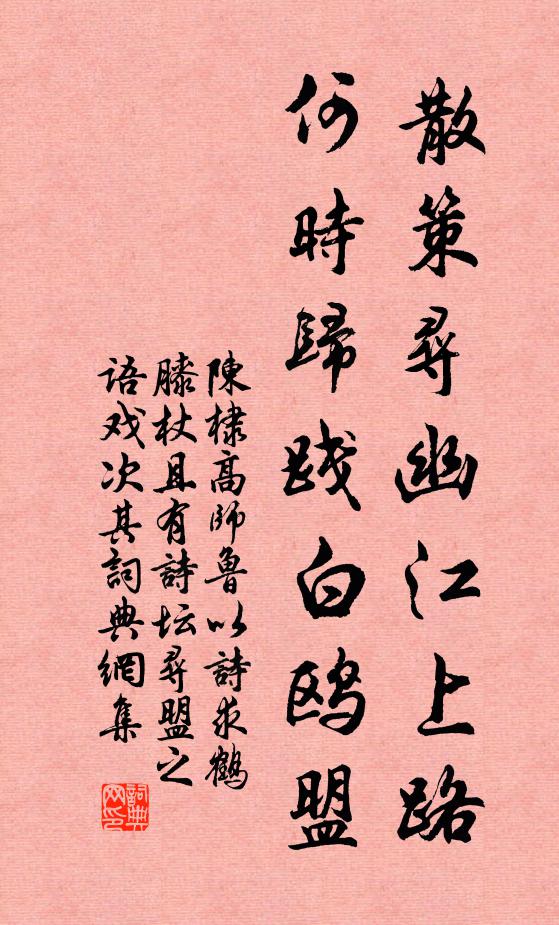 散策尋幽江上路
何時歸踐白鸥盟
陳棣高師魯以詩求鶴
膝杖且有詩坛尋盟之
语戏次其詞典網集
詞典网印